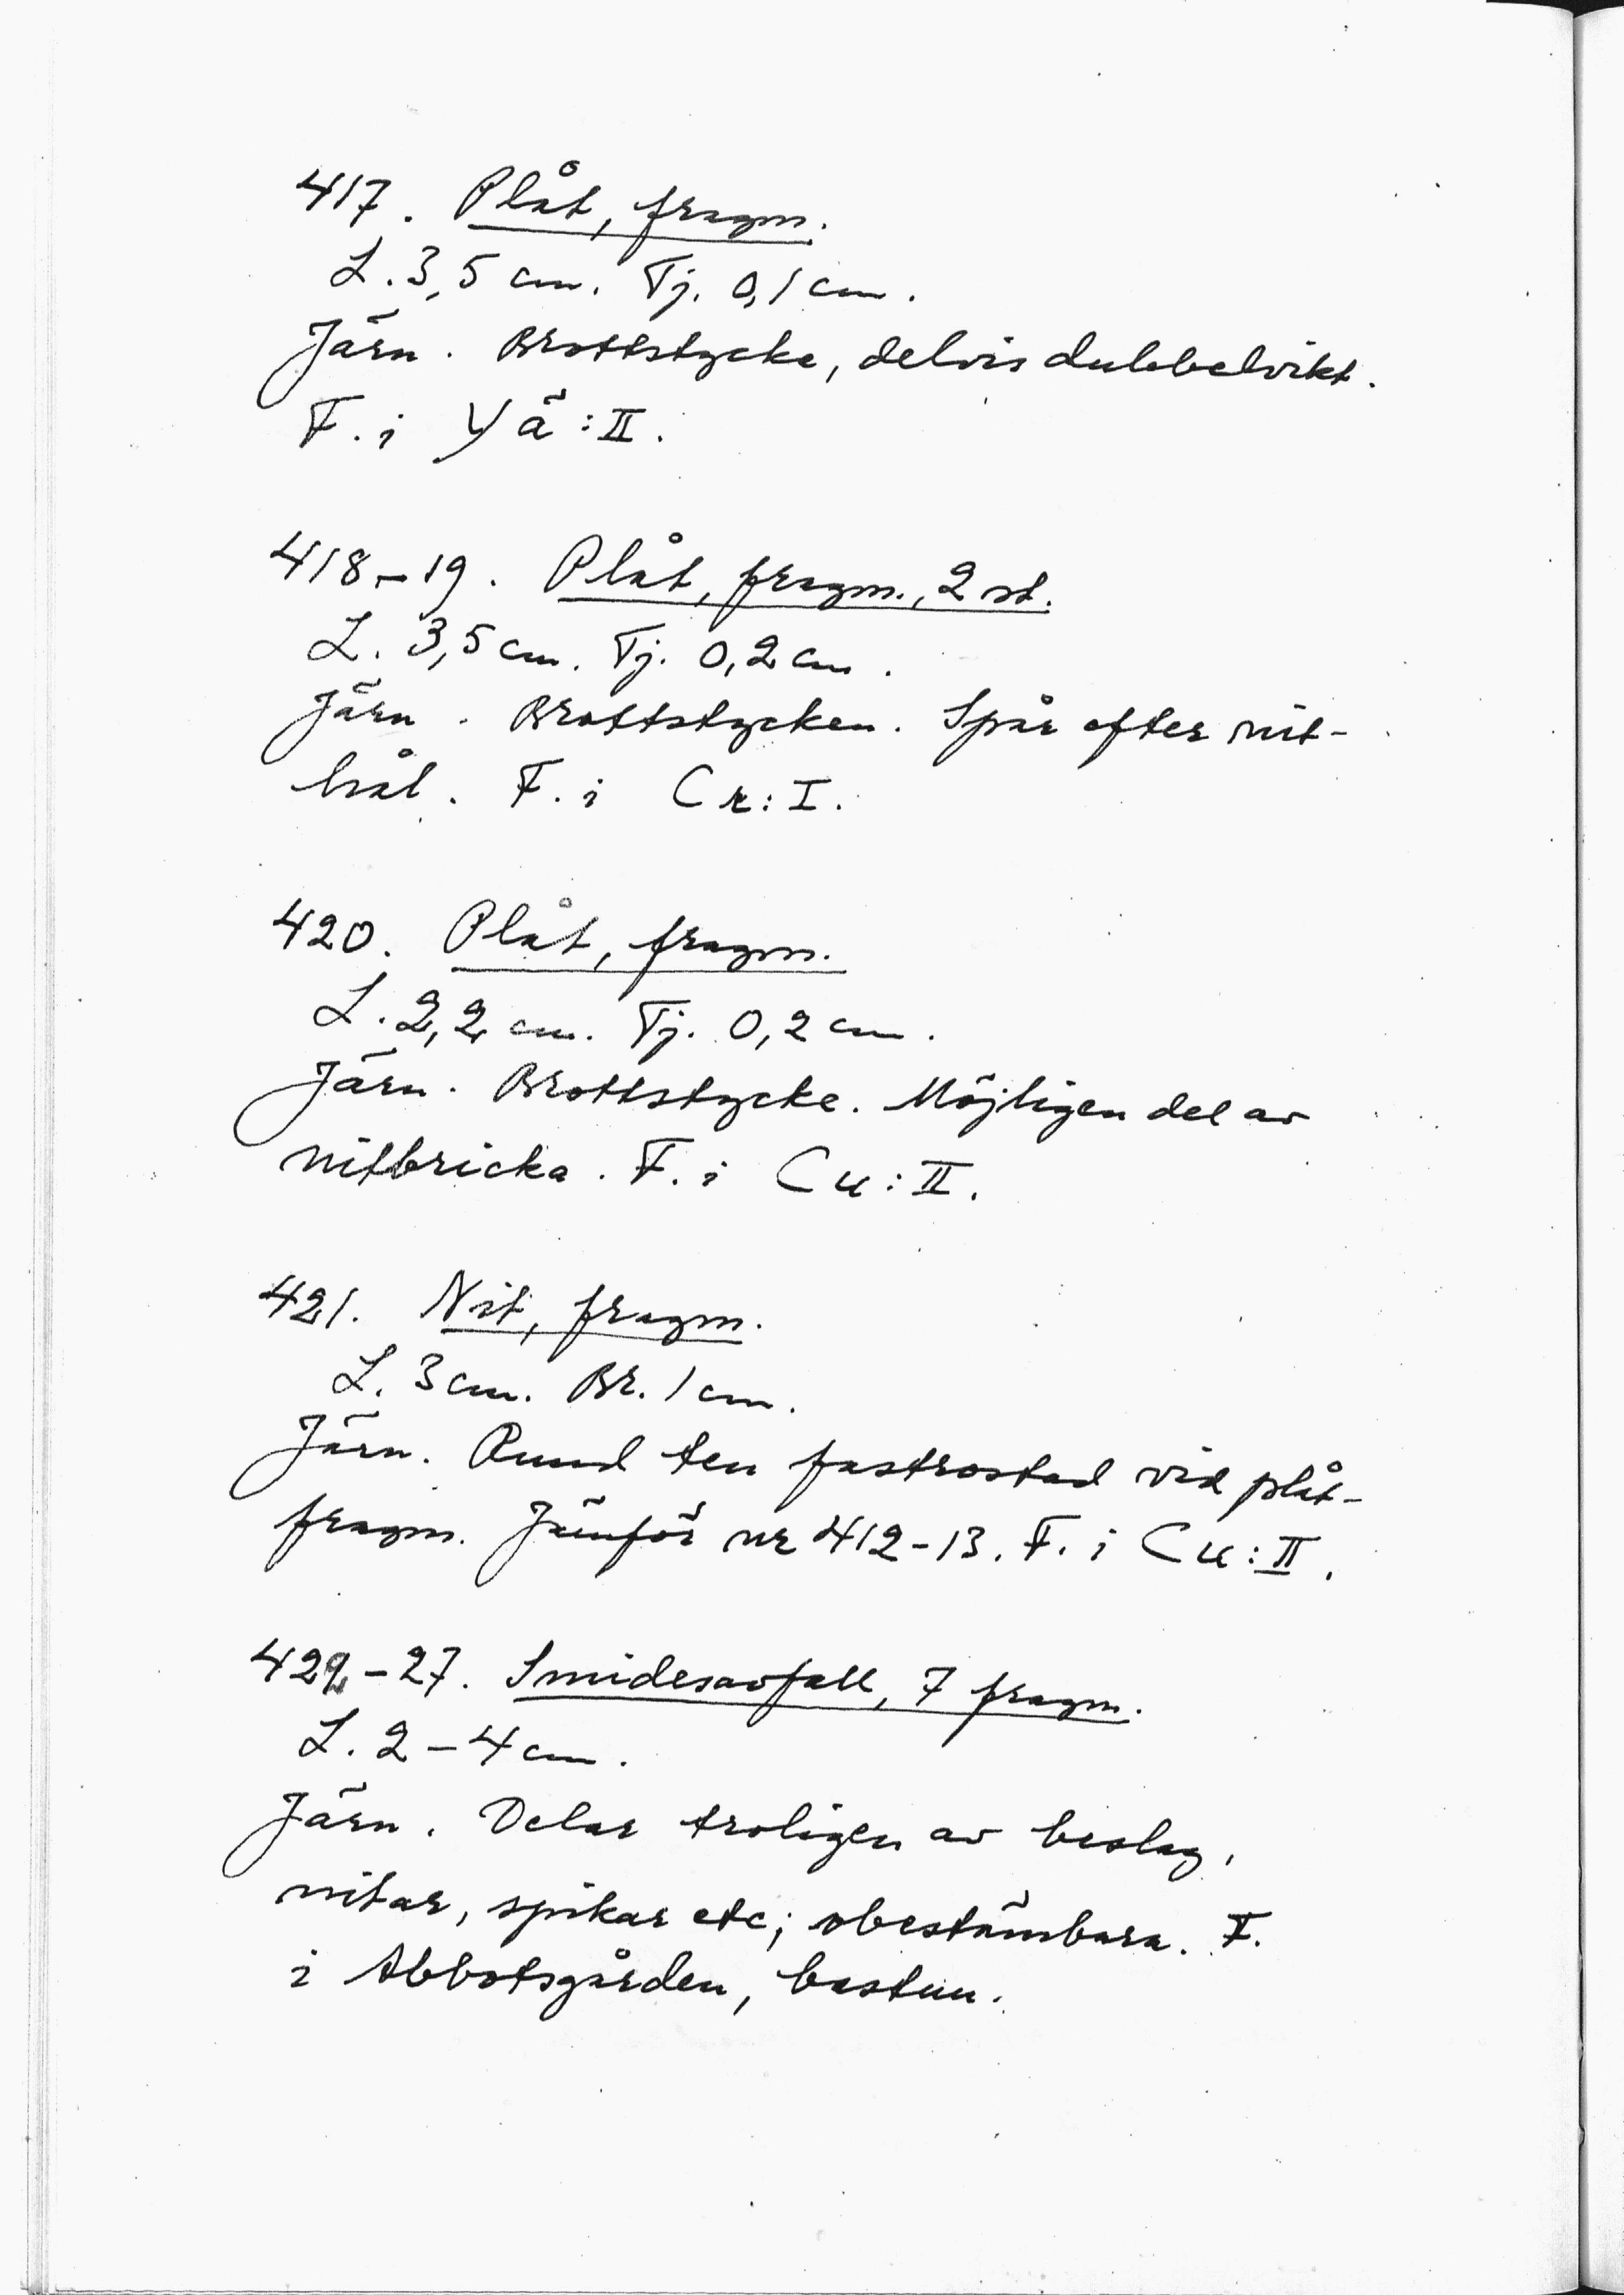 417. Plåt, fragm.
L. 3,5 cm. Tj. 0,1 cm.
Järn. Brottstycke, delvis dubbelvikt.
F. i Yä: II.
418-19. Plåt, fragm., 2 st.
L. 3,5 cm. Tj. 0,2 cm.
Järn. Brottstycken. Spår efter nit-
hål. F. i Cr: I.
420. Plåt, fragm.
L. 2,2 cm. Tj. 0,2 cm.
Järn. Brottstycke. Möjligen del av
nitbricka. F. i Cu: II.
421. Nit, fragm.
L. 3 cm. Br. 1 cm.
Järn. Rund ten fastrostad vid plåt-
fragm. Jämför nr 412-13. F. i Cu: II.
422-27. Smidesavfall, 7 fragm.
L. 2-4 cm.
Järn. Delar troligen av beslag,
nitar, spikar etc; obestämbara. F.
i Abbotsgården, bastun.